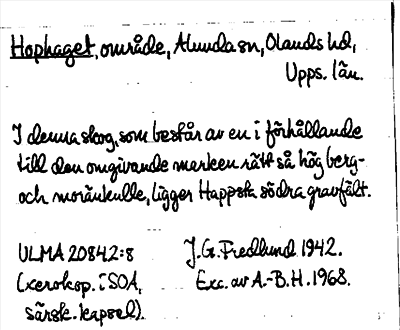 Hophaget, område, Alunda sn, Olands hd,
Upps. län.
I denna skog, som består av en i förhållande
till den omgivande marken rätt så hög berg-
och moränkulle, ligger Happsta södra gravfält.
ULMA 20842:8 J.G. Fredlund 1942.
(xerokop. i SOA, Exc. av A.-B.H. 1968.
särsk. kapsel).